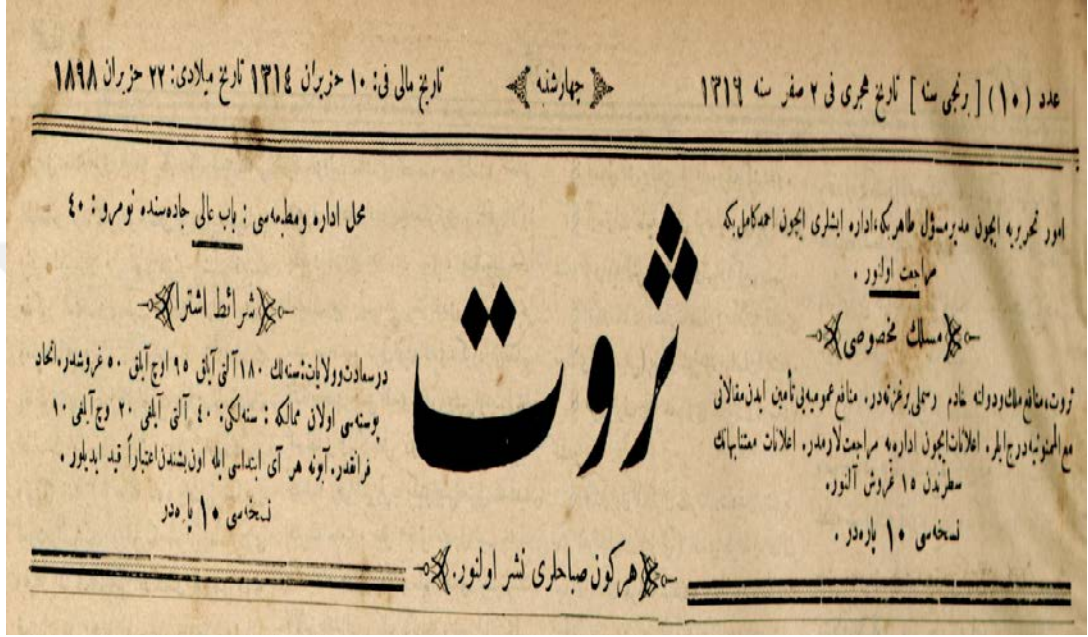 عدد (١٠) [ برنجی سنه ] تاریخ هجری فی ٢ صفر سنه ١٣١٦
چهارشنبه
تاریخ مالی فی: ١٠ حزیران ١٣١٤ تاریخ میلادی: ٢٢ حزیران ١٨٩٨
امور تحریریه ایچون مدیر مسؤل طاهر بكه، اداره ایشلری ایچون احمد کامل بكه
مراجعت اولنور .
مسلك مخصوصی
ثروت، منافع ملك ودولته خادم رسملی بر غزته‌در. منافع عمومیه‌یی تأمین ایدن مقالاتی
مع الممنونیه درج ایلر. اعلانات ایچون اداره‌یه مراجعت لازمدر. اعلانات
سطرندن ١٥ غروش آلنور.
نسخه‌سی ١٠ پاره‌در .
ثروت
محل اداره ومطبعه‌سی : باب عالی جاده‌سنده نومرو : ٤٠
شرائط اشترا
درسعادت وولایات: سنه‌لك ١٨٠ آلتی آیلق ٩٥ اوچ آیلق ٥٠ غروشدر. اتحاد
پوسته‌سی اولان ممالكه : سنه‌لکی: ٤٠ آلتی آیلغی ٢٠ وچ آیلغی ١٠
فرانقدر. آبونه هر آی ابتداسی ایله اون بشندن اعتباراً قید ایدیلور .
نسخه‌سی ١٠ پاره‌در
هر کون صباحلری نشر اولنور.